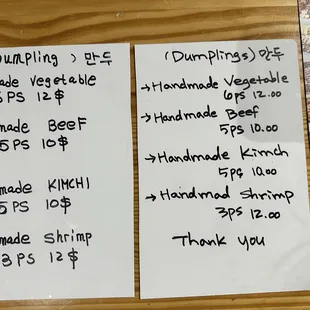 Dumpling ) 만두
ade vegetable
6 PS 12$
made BEEF
5 PS 10$
made KIMCHI
5 PS 10$
made shrimp
3 PS 12$
(Dumplings) 만두
→ Handmade Vegetable
6ps 12.00
→ Handmade Beef
5ps 10.00
→ Handmade Kimch
5ps 10.00
→ Haindmad Shrimp
3ps 12.00
Thank you